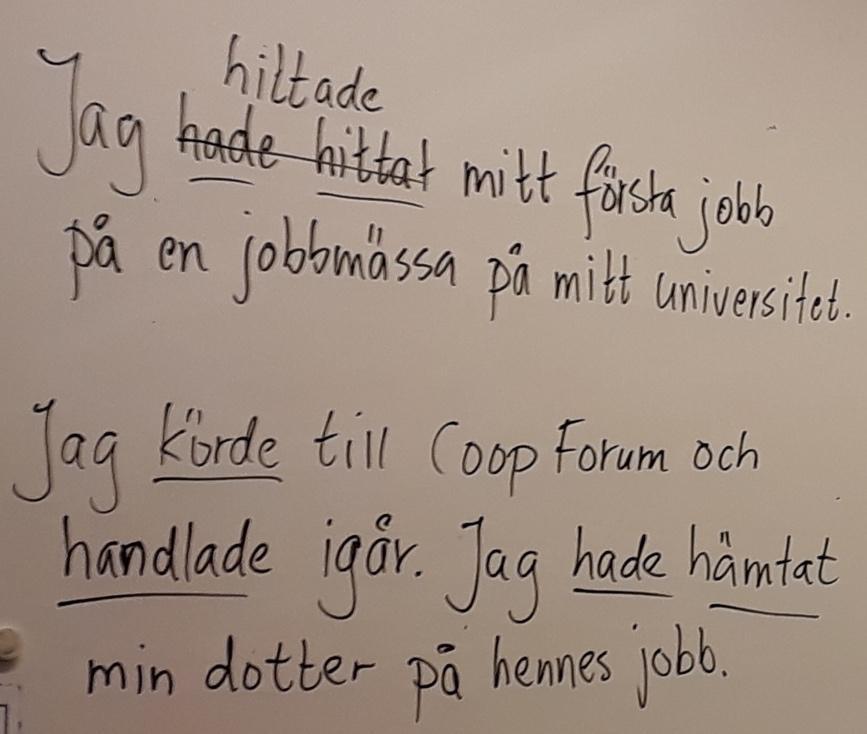 hittade
Jag hade hittat mitt första jobb
på en jobbmässa på mitt universitet.
Jag körde till Coop Forum och
handlade igår. Jag hade hämtat
min dotter på hennes jobb.